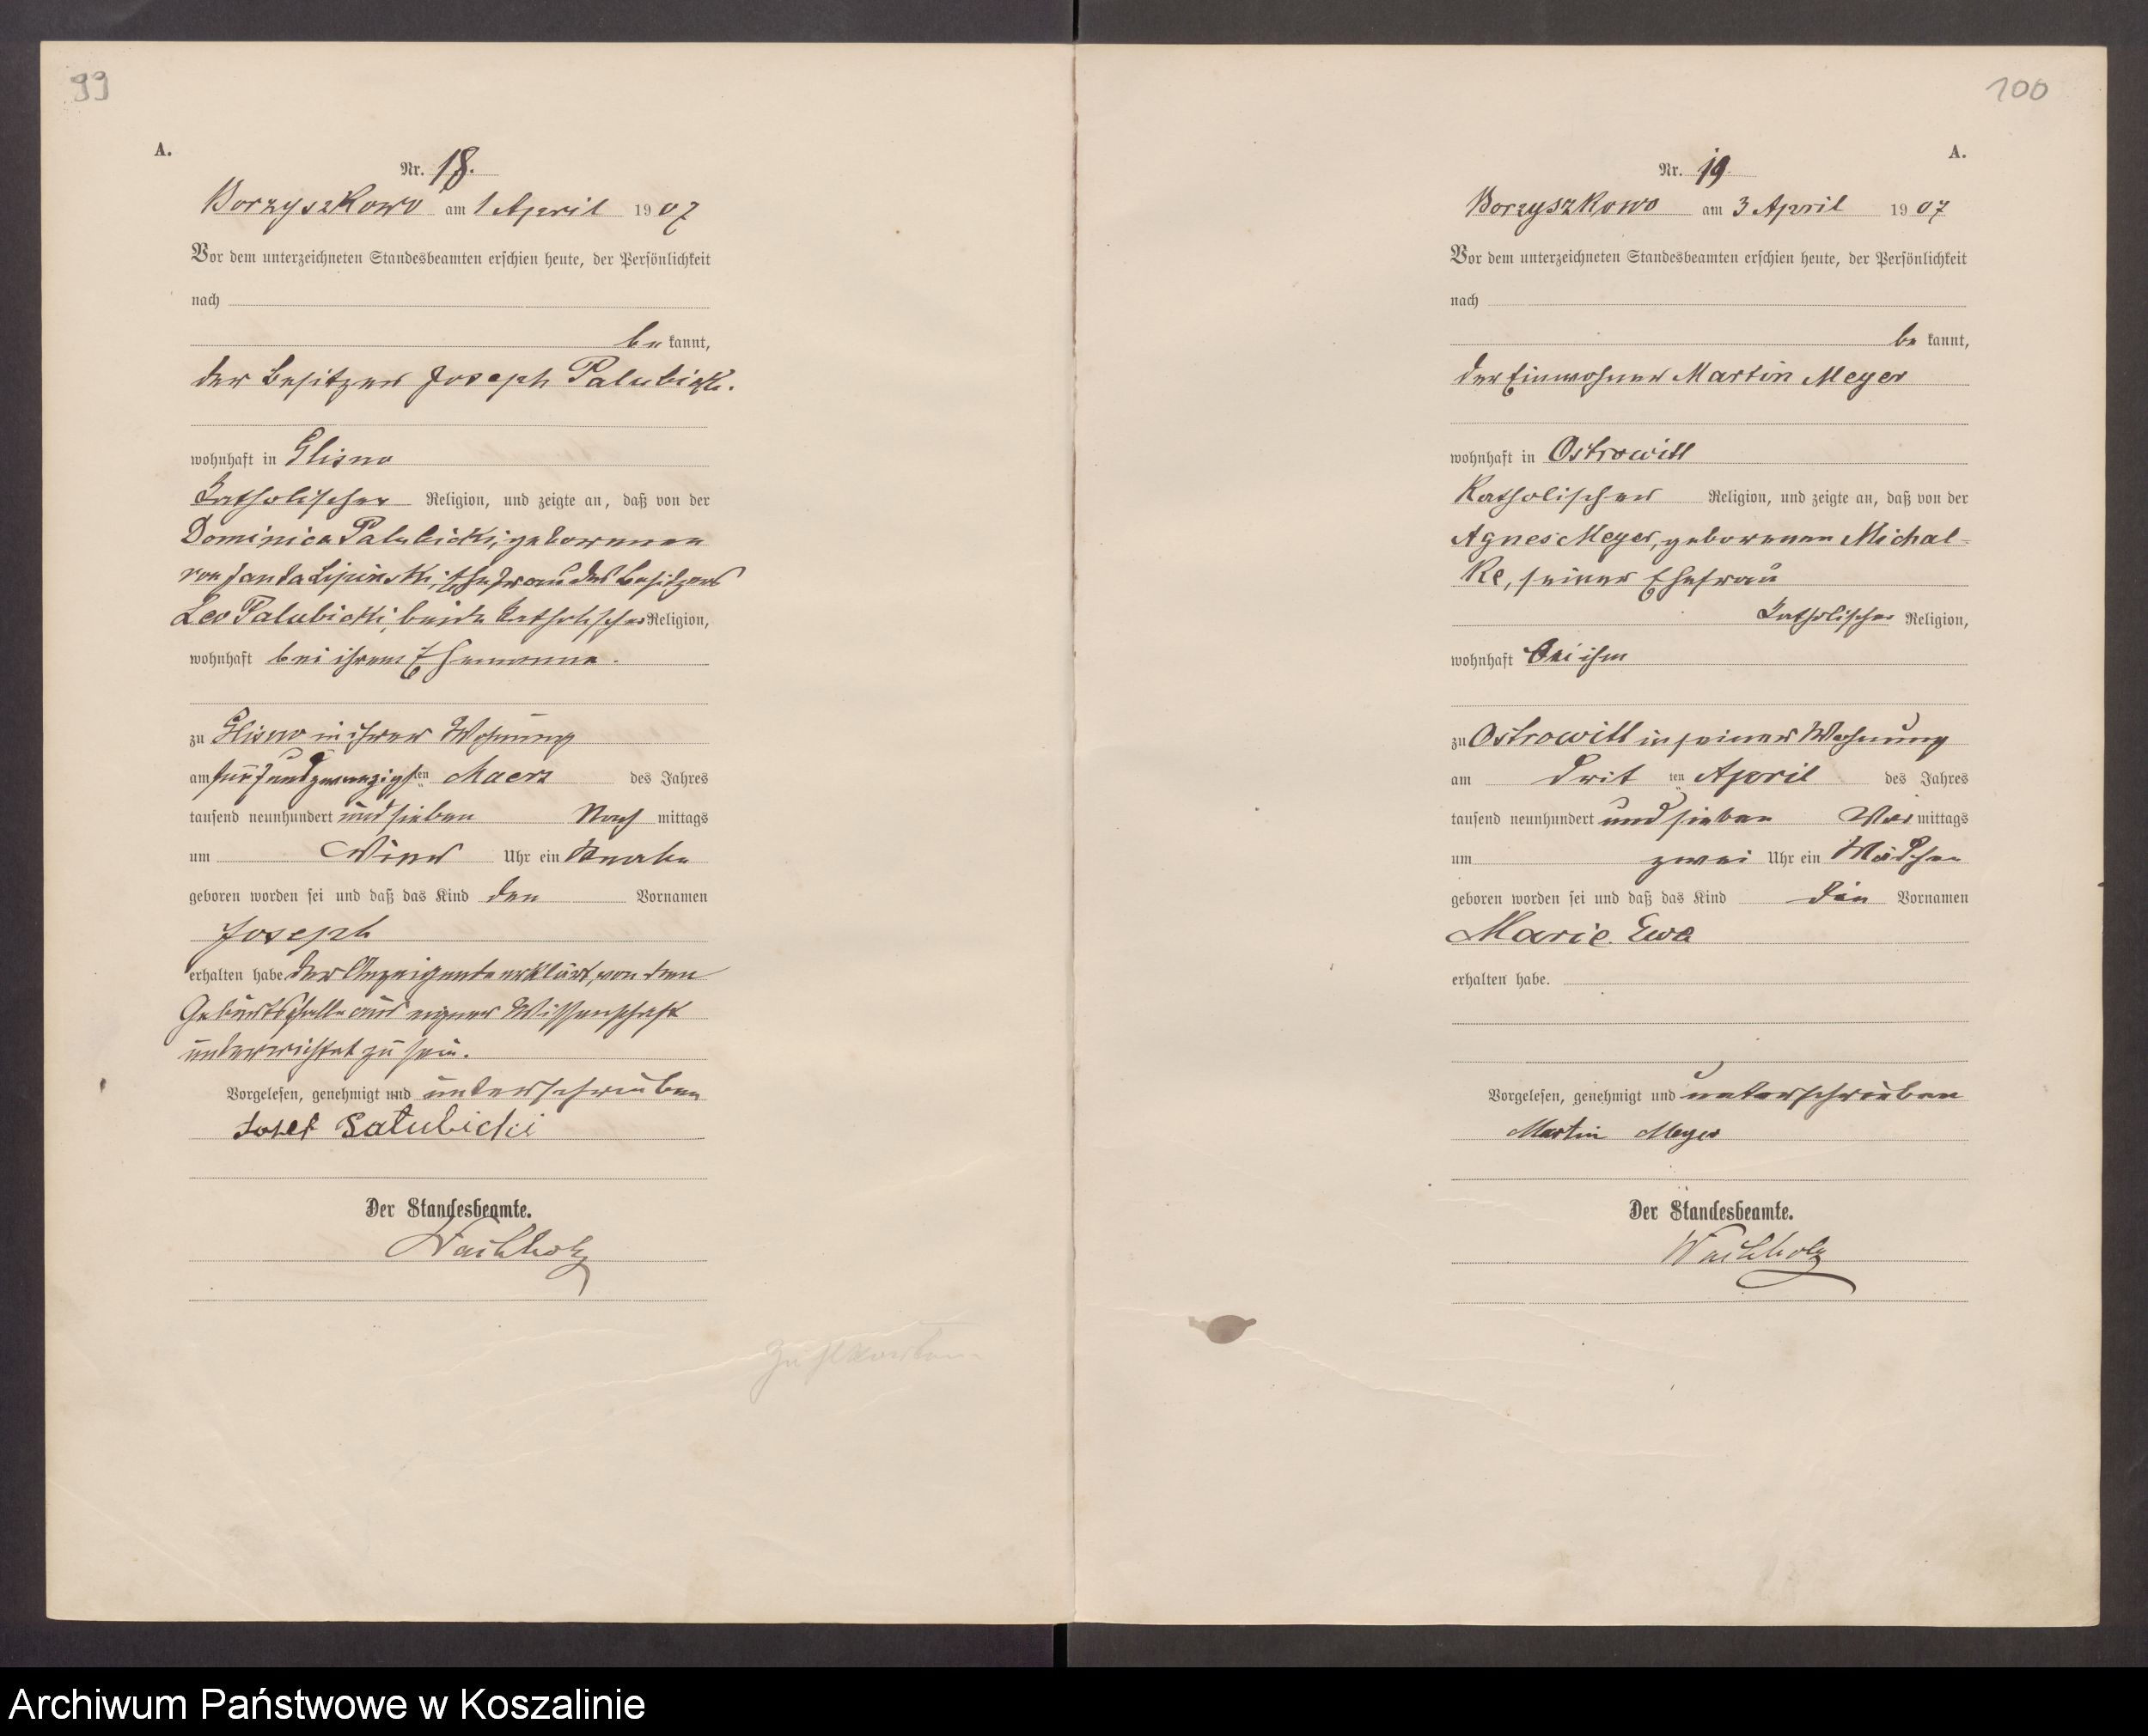 99
A.
Nr. 18.
Borzyszkowo am 1 April 1907
Vor dem unterzeichneten Standesbeamten erschien heute, der Persönlichkeit
nach
be kannt,
der Besitzer Joseph Palubicki.
wohnhaft in Glisno
katholischer Religion, und zeigte an, daß von der
Dominica Palubicki, geborenen
von Janta Lipinski, Ehefrau des Besitzers
Leo Palubicki, beide katholischer Religion,
wohnhaft bei ihrem Ehemanne.
zu Glisno in ihrer Wohnung
am fünfundzwanzigsten Maerz des Jahres
tausend neunhundert und sieben Nach mittags
um Vier Uhr ein Knabe
geboren worden sei und daß das Kind den Vornamen
Joseph
erhalten habe. Der Anzeigende erklärt, von dem
Geburtsfalle aus eigener Wissenschaft
unterrichtet zu sein.
Vorgelesen, genehmigt und unterschrieben
Josef Pałubicki
Der Standesbeamte.
100
A.
Nr. 19.
Borzyszkowo am 3 April 1907
Vor dem unterzeichneten Standesbeamten erschien heute, der Persönlichkeit
nach
be kannt,
der Einwohner Martin Meyer
wohnhaft in Ostrowitt
Katholischer Religion, und zeigte an, daß von der
Agnes Meyer, geborenen Michal-
ke, seiner Ehefrau
katholischer Religion,
wohnhaft bei ihm
zu Ostrowitt in seiner Wohnung
am drit ten April des Jahres
tausend neunhundert und sieben Vor mittags
um zwei Uhr ein Mädchen
geboren worden sei und daß das Kind die Vornamen
Marie Ewa
erhalten habe.
Vorgelesen, genehmigt und unterschrieben
Martin Meyer
Der Standesbeamte.
Archiwum Państwowe w Koszalinie